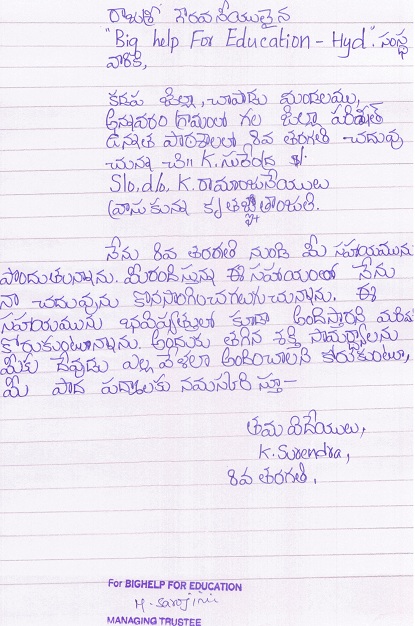 రాజశ్రీ గౌరవనీయులైన
"Big help For Education - Hyd". సంస్థ
వారికి,
కడప జిల్లా, చాపాడు మండలము,
అన్నవరం గ్రామంలో గల జిల్లా పరిషత్
ఉన్నత పాఠశాలలో 8వ తరగతి చదువు
చున్న చి॥ K. సురేంద్ర
S/o, d/o. K. రామాంజనేయులు
వ్రాసుకున్న కృతజ్ఞతాంజలి.
నేను 8వ తరగతి నుండి మీ సహాయమును
పొందుతున్నాను. మీరందిస్తున్న ఈ సహాయంతో నేను
నా చదువును కొనసాగించగలుగుచున్నాను. ఈ
సహాయమును భవిష్యత్తులో కూడా అందిస్తారని మరీ
కోరుకుంటున్నాను. అందుకు తగిన శక్తి సామర్థ్యాలను
మీకు దేవుడు ఎల్ల వేళలా అందించాలని కోరుకుంటూ,
మీ పాద పద్మాలకు నమస్కరిస్తూ-
తమ విదేయులు,
K. Surendra,
8వ తరగతి.
For BIGHELP FOR EDUCATION
M. Sarojini
MANAGING TRUSTEE